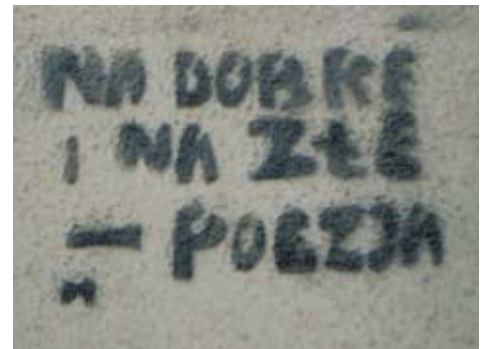 NA DOBRE
i NA ZŁE
— POEZJA